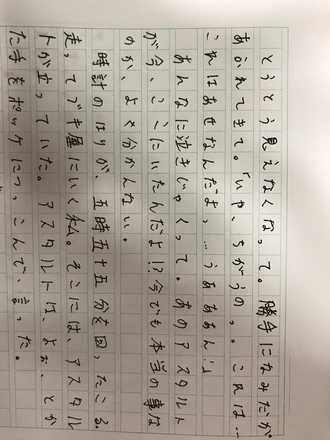 とうとう見えなくなって。勝手になみだが
あふれてきて。「いや、ちがうの、。これは…
これはあせなんだよっ…うああああん!」
あんなに泣きじゃくって。あのアスタルト
が今、ここにいたんだよ!?今でも本当の事な
のか、よく分かんない。
時計のはりが、五時五十五分を回ったころ。
走ってブキ屋にいく私。そこには、アスタル
トが立っていた。アスタルトは、よぉ…とか
た手をポッケにつっこんで、言った。